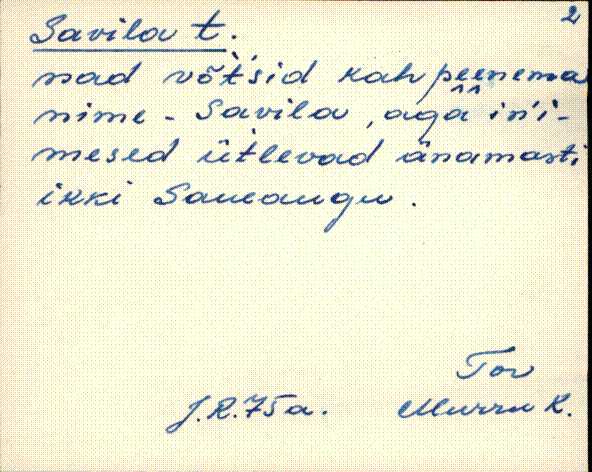 2
Savila t.
nad võt́sid kah peenema
nime - Savila, agâ in'i-
mesed üt́levad änamasti
ikki Saueaugu.
Tor
J.R. 75a. Murru K.